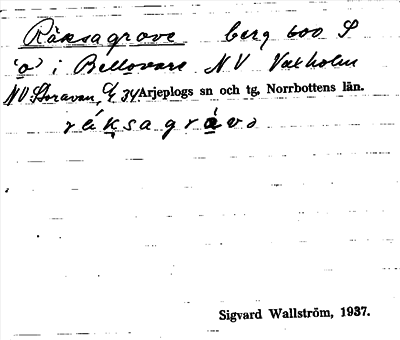 Räksagrove berg 600 S
'o' i Bellovare NV Vaxholm
NV Storavan, 9/7 34 Arjeplogs sn och tg, Norrbottens län.
ráksagràvo
Sigvard Wallström, 1937.